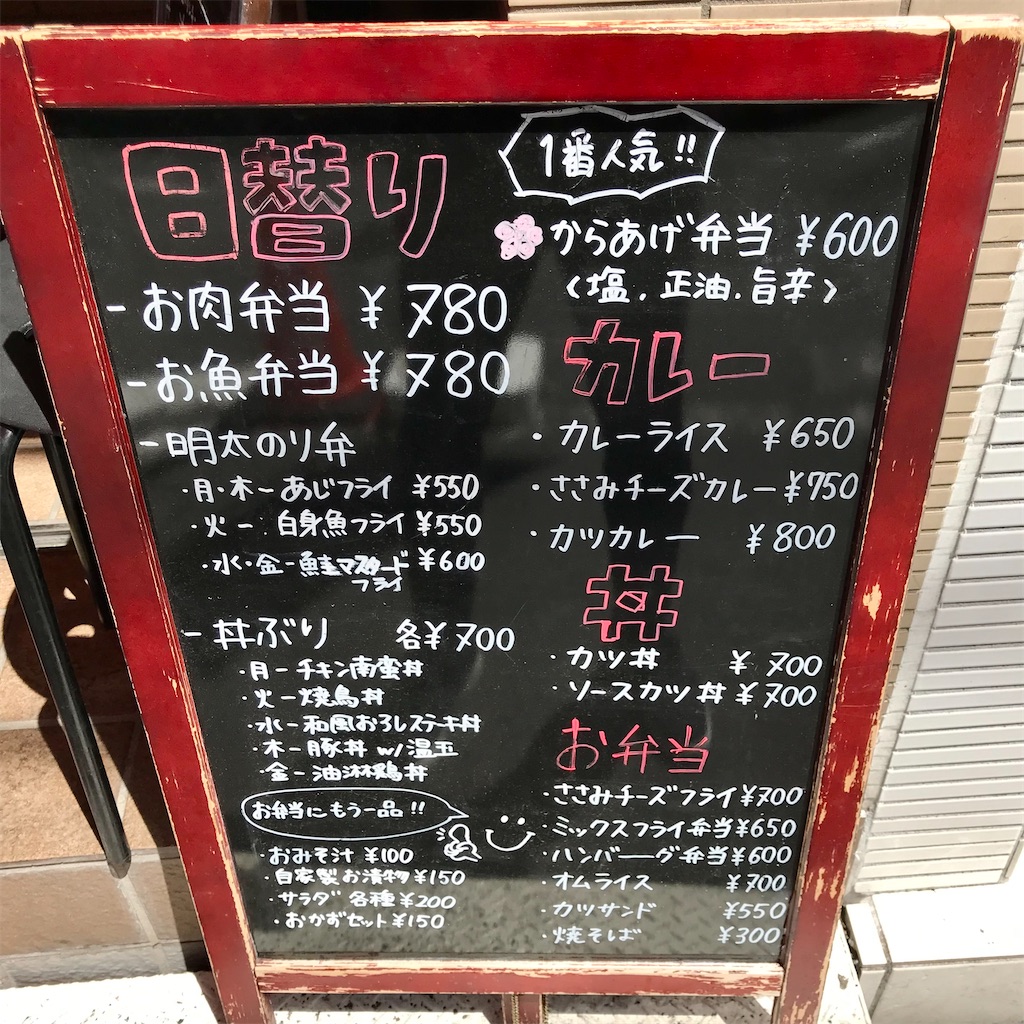 日替り
-お肉弁当 ¥780
-お魚弁当 ¥780
-明太のり弁
・月・木ーあじフライ ¥550
・火ー 白身魚フライ ¥550
・水・金ー鮭マスタードフライ ¥600
-丼ぶり 各¥700
・月ーチキン南蛮丼
・火ー焼鳥丼
・水ー和風おろしステーキ丼
・木ー豚丼 w/温玉
・金ー油淋鶏丼
お弁当にもう一品!!
・おみそ汁 ¥100
・自家製お漬物 ¥150
・サラダ 各種 ¥200
・おかずセット ¥150
1番人気!!
からあげ弁当 ¥600
(塩.正油.旨辛)
カレー
・カレーライス ¥650
・ささみチーズカレー ¥750
・カツカレー ¥800
丼
・カツ丼 ¥700
・ソースカツ丼 ¥700
お弁当
・ささみチーズフライ ¥700
・ミックスフライ弁当 ¥650
・ハンバーグ弁当 ¥600
・オムライス ¥700
・カツサンド ¥550
・焼そば ¥300